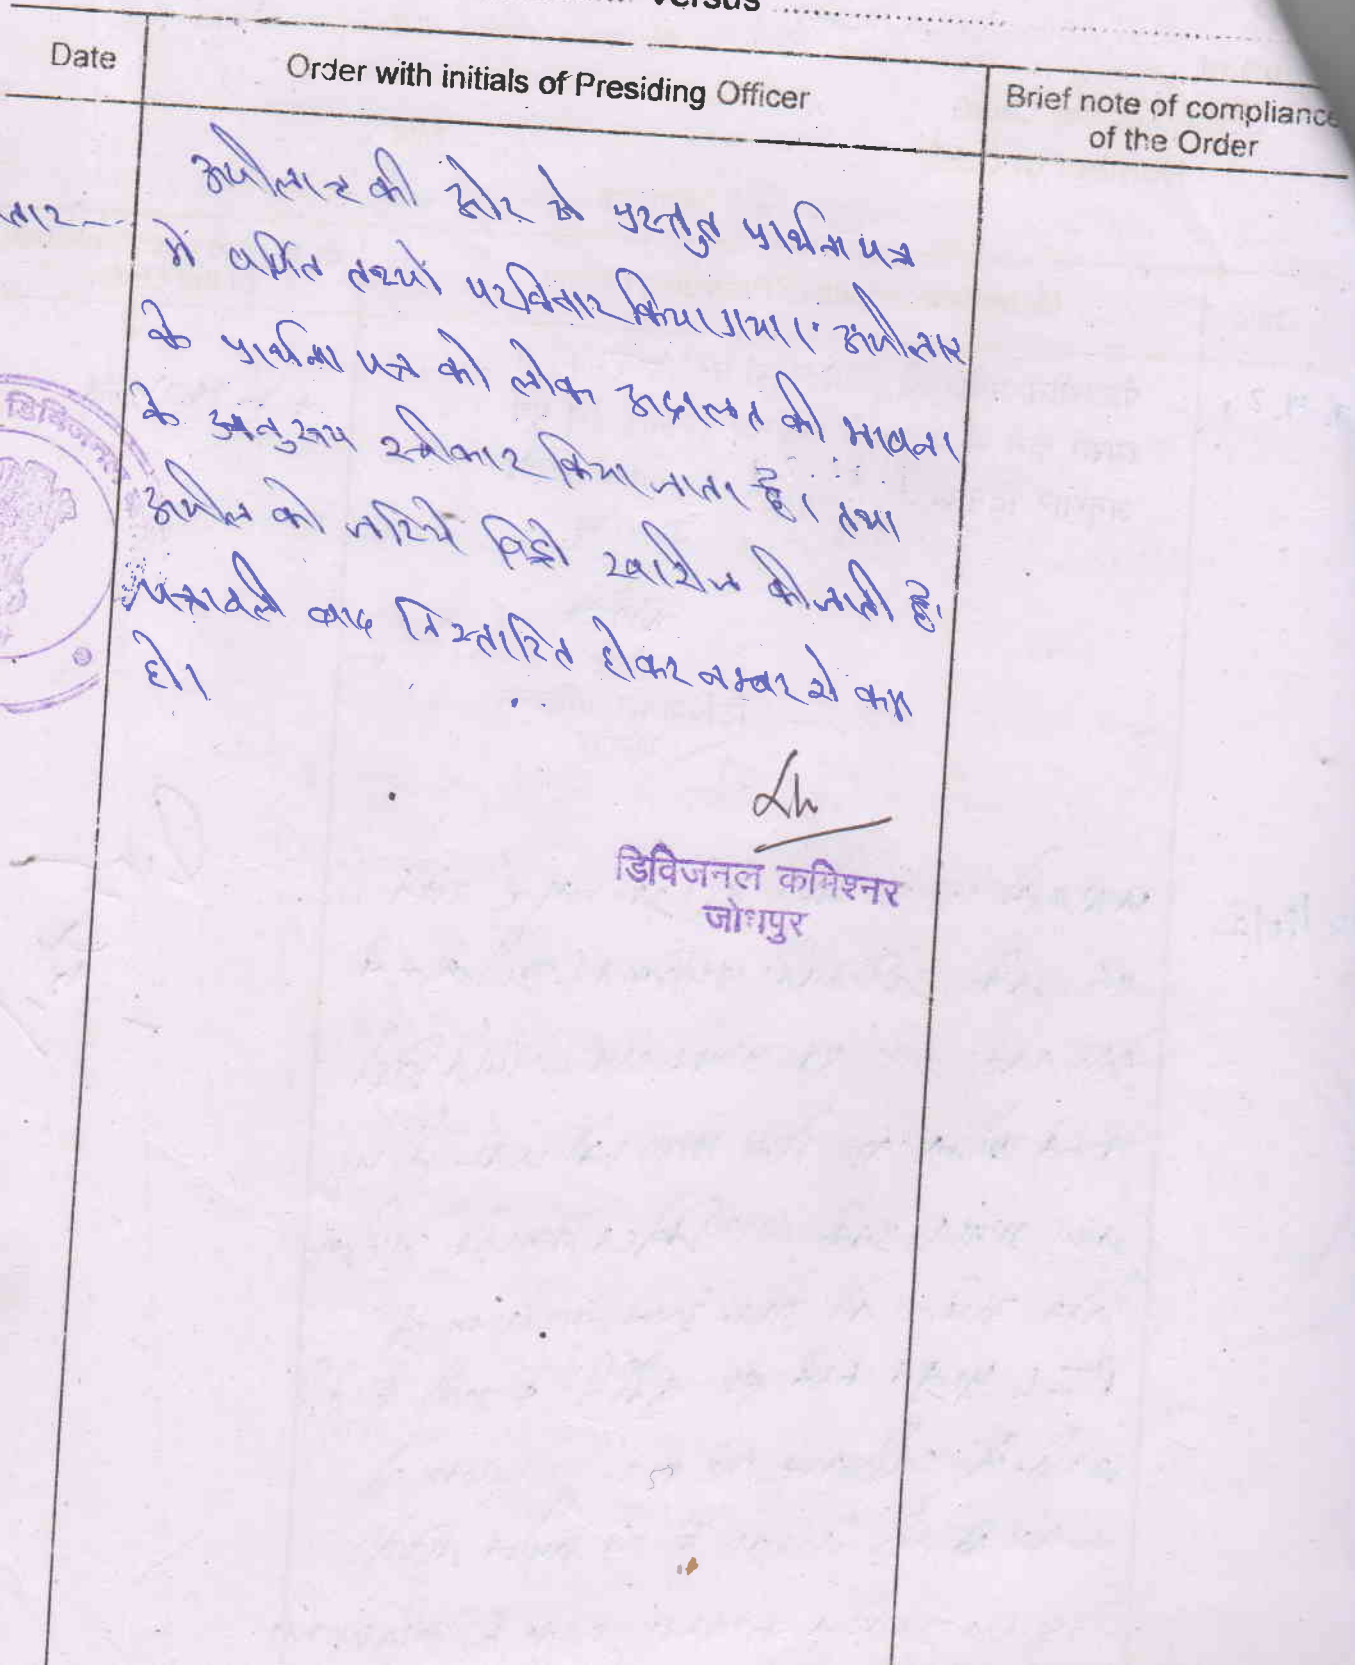 versus
Date
Order with initials of Presiding Officer
Brief note of compliance
of the Order
अपीलांट की ओर से प्रस्तुत प्रार्थना पत्र
में वर्णित तथ्यों पर विचार किया गया। अपीलांट
के प्रार्थना पत्र को लोक अदालत की भावना
के अनुरूप स्वीकार किया जाता है। तथा
अपील को जरिये विड्रो खारीज की जाती है।
पत्रावली बाद निस्तारित होकर नम्बर से कम
हो।
डिविजनल कमिश्नर
जोधपुर
डिविजनल